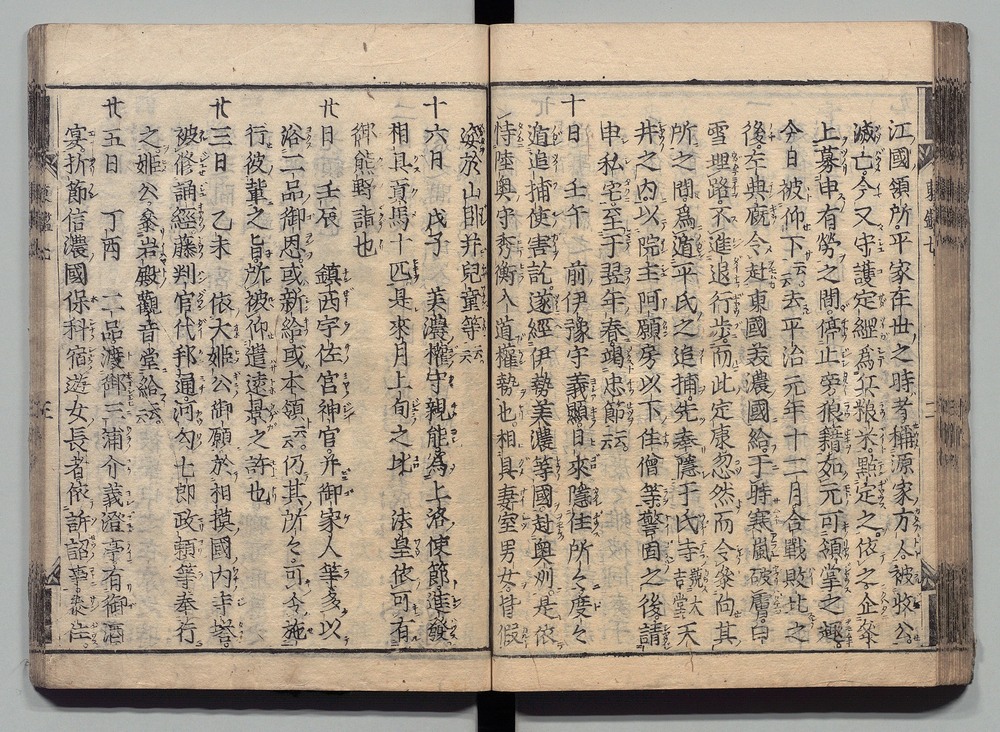 江國領所。平家在世之時者。稱源家方人。被收公。
滅亡。今又守護定綱。爲兵粮米。點定之。依之企參
上。募申有勞之間。停止旁狼籍。如元可領掌之趣。
今日被仰下云云。去平治元年十二月合戰敗北之
後。左典厩令赴東國美濃國給。于時寒嵐破膚。白
雪埋路。不進退行步。而此定康忽然而令參向其
所之間。爲遁平氏之追捕。先奉隱于氏寺號大吉堂天
井之内。以院主阿願房以下住僧等。警固之後。請
申私宅。至于翌年春。竭忠節云云。
十日 壬午 前伊豫守義顯。日來隱住所々。度々
遁追捕使害訖。遂經伊勢美濃等國。赴奧州。是依
恃陸奧守秀衡入道權勢也。相具妻室男女。皆假
姿於山臥并兒童等云云。
十六日 戊子 美濃權守親能。爲上洛使節進發。
相具貢馬十匹。是來月上旬之比 法皇依可有
御熊野詣也
廿日 壬辰 鎮西宇佐官神官。并御家人等。多以
浴二品御恩。或新給。或本領云云。仍其所々。可令施
行彼輩之旨。所被仰遣遠景之許也。
廿三日 乙未 依大姫公御願。於相摸國内寺塔。
被修誦經。藤判官代邦通。河勾七郎政賴等奉行
之。姫公參岩殿觀音堂給云云。
廿五日 丁酉 二品渡御三浦介義澄亭。有御酒
宴。折節信濃國保科宿遊女長者。依訴訟事參住。